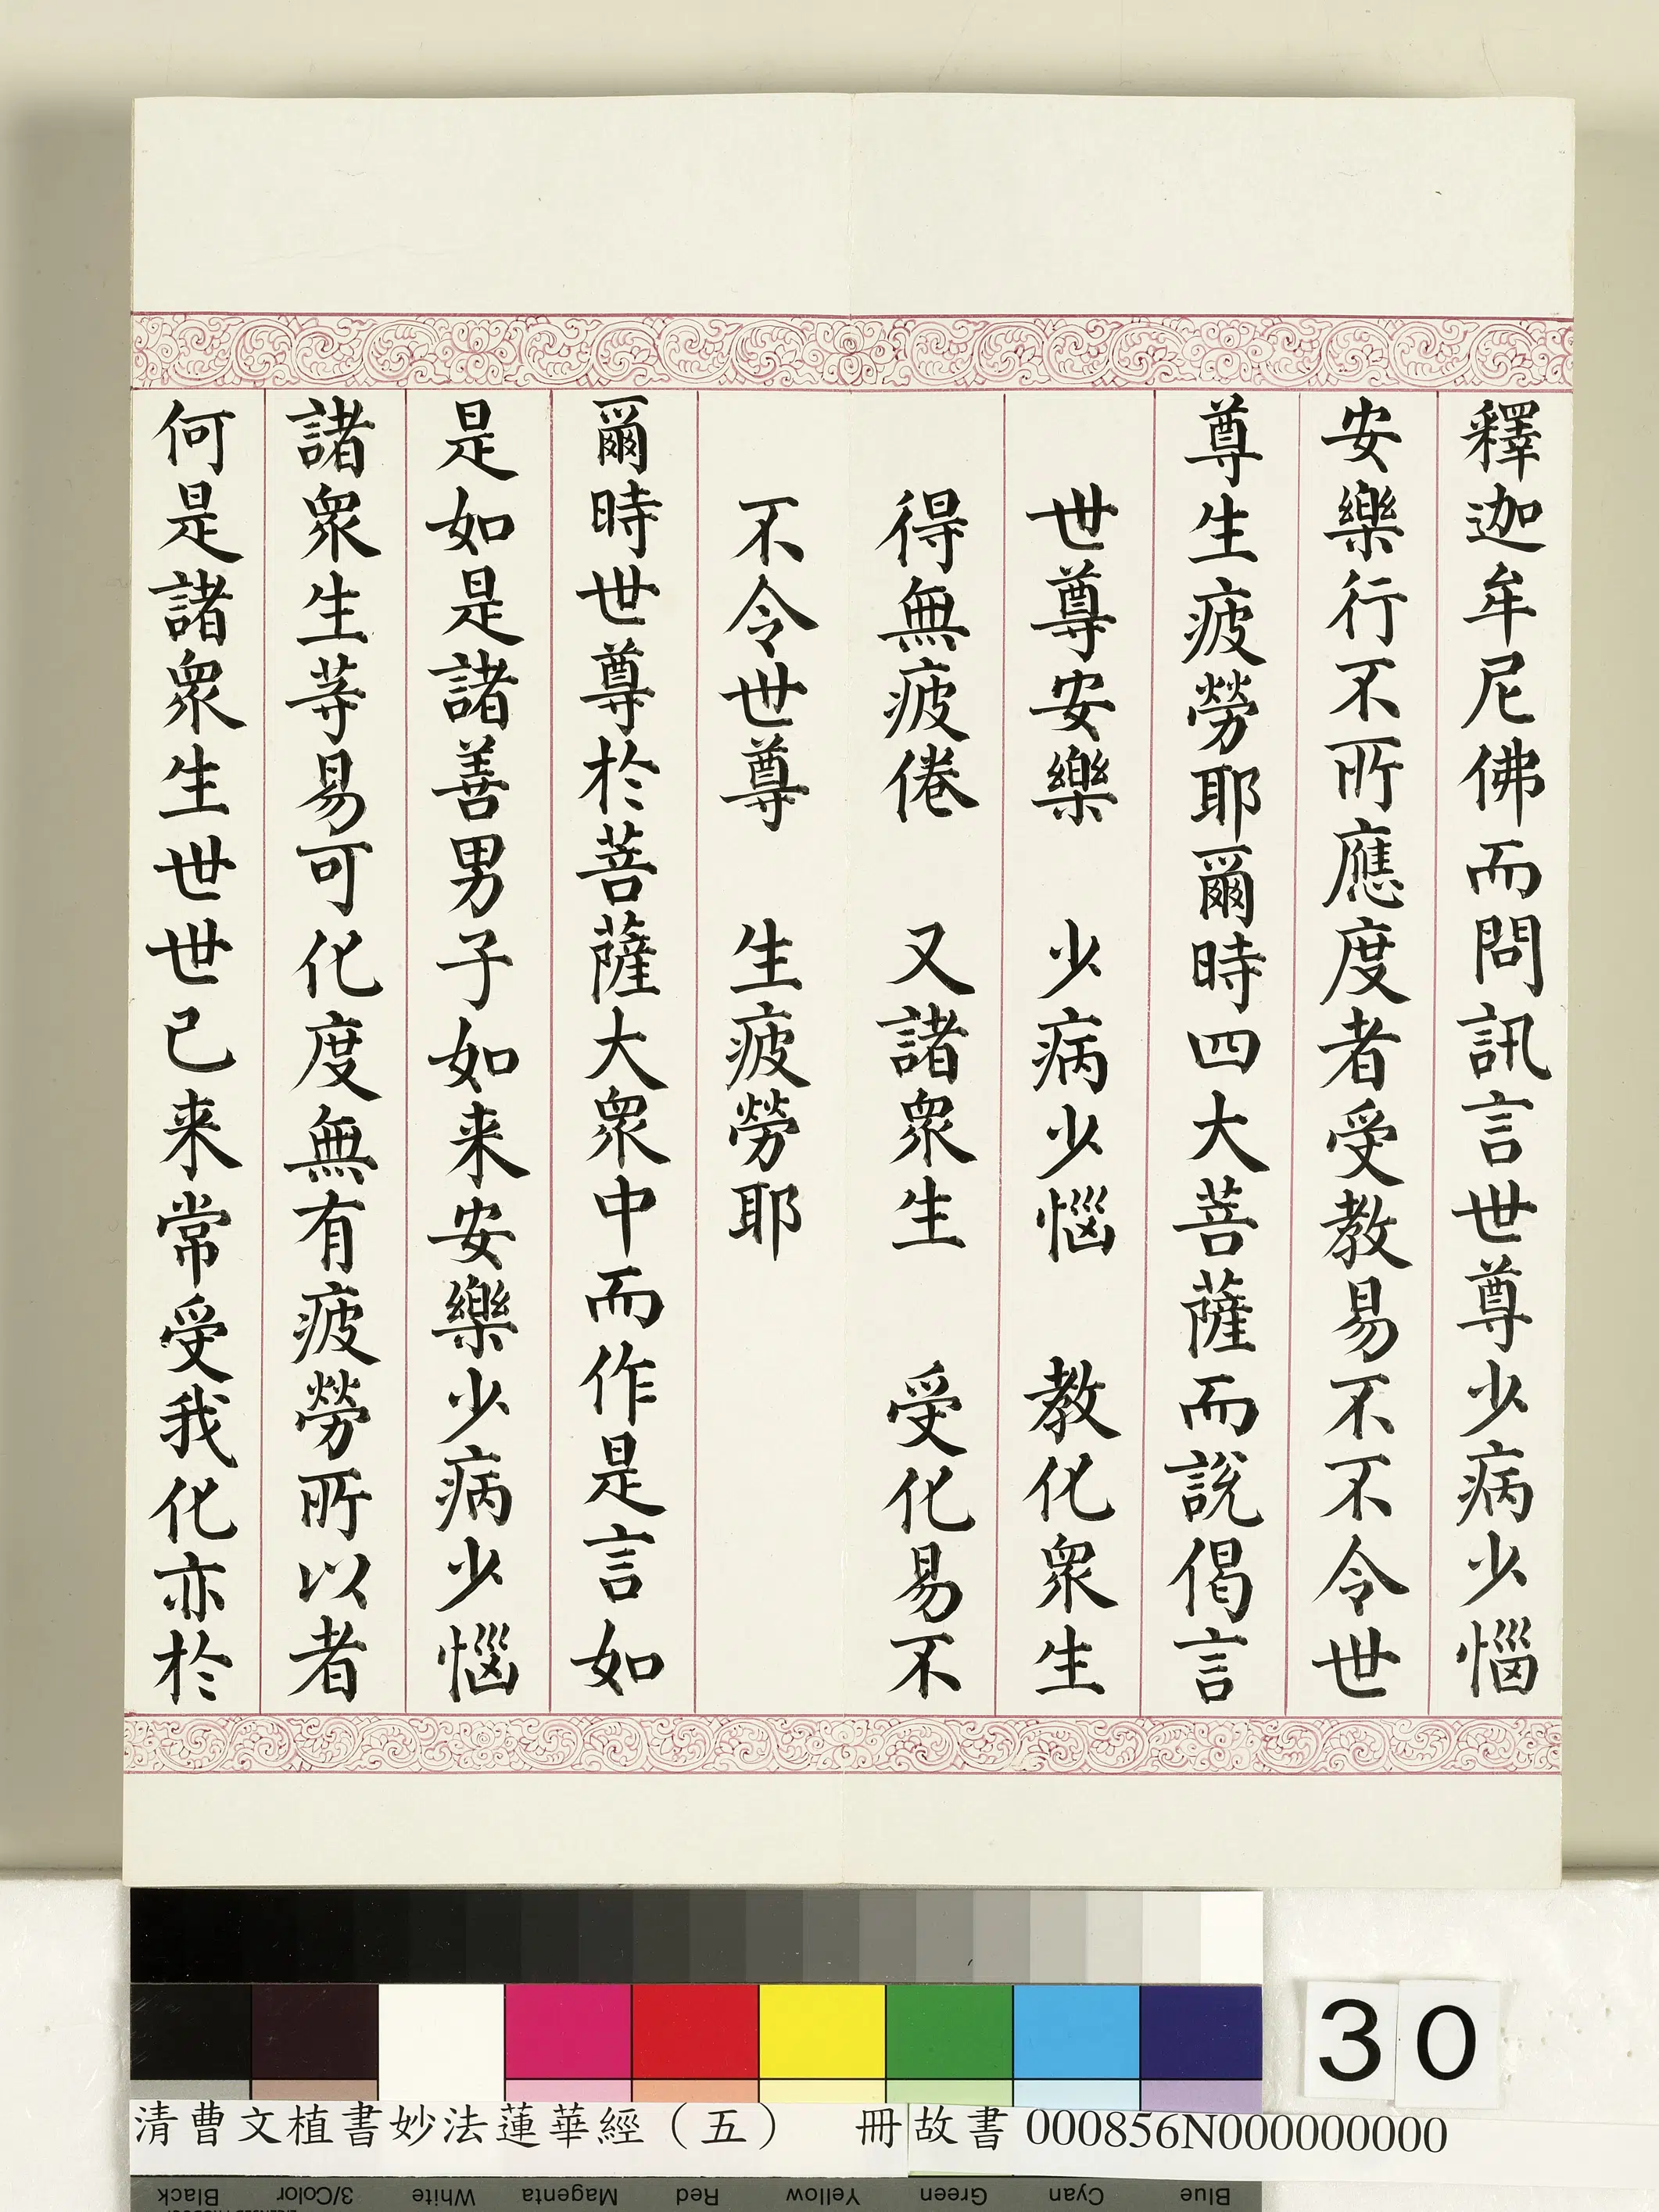 釋迦牟尼佛而問訊言世尊少病少惱
安樂行不所應度者受教易不不令世
尊生疲勞耶爾時四大菩薩而說偈言
世尊安樂　少病少惱　教化衆生
得無疲倦　又諸衆生　受化易不
不令世尊　生疲勞耶
爾時世尊於菩薩大衆中而作是言如
是如是諸善男子如来安樂少病少惱
諸衆生等易可化度無有疲勞所以者
何是諸衆生世世已来常受我化亦於
30
清曹文植書妙法蓮華經（五）　冊故書000856N000000000
Black 3/Color White Magenta Red Yellow Green Cyan Blue